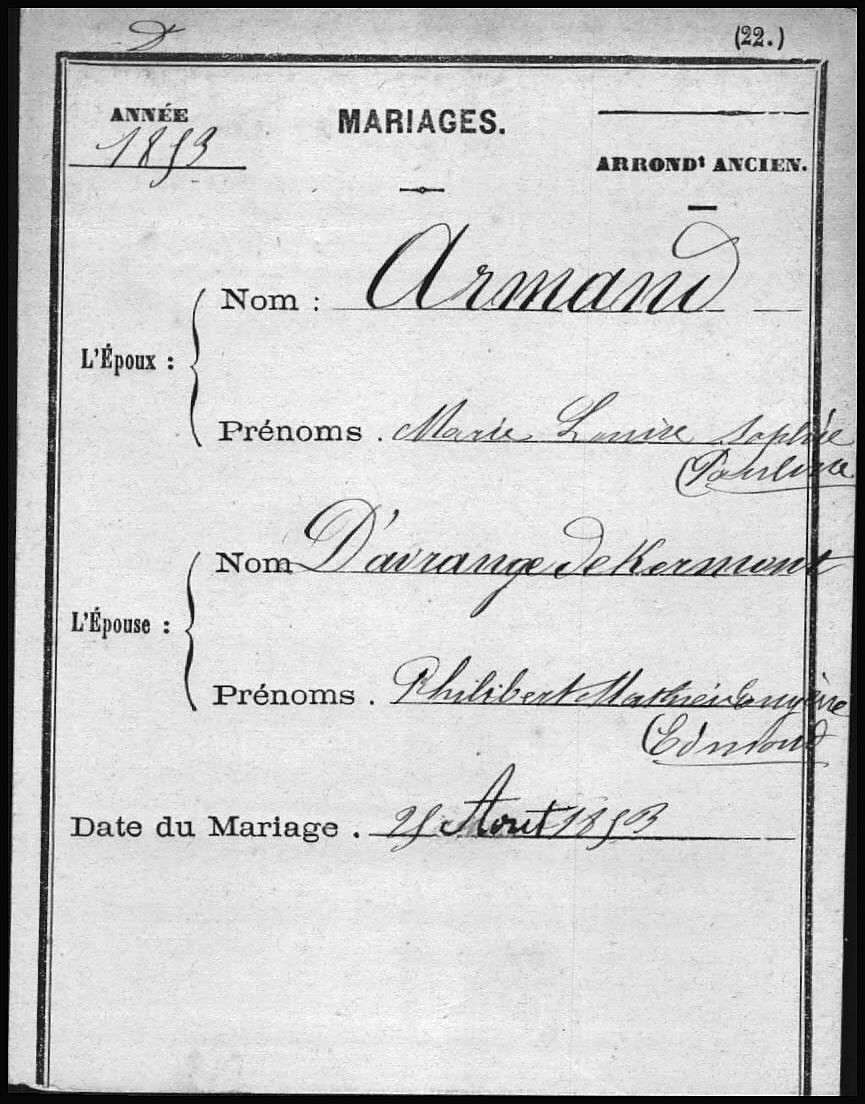 D (22.)
ANNÉE
1853
MARIAGES.
ARRONDt ANCIEN.
L'Époux :
Nom : Armand
Prénoms . Marie Louise Sophie
(Pauline
L'Épouse :
Nom D'avrange de Kermont
Prénoms . Philibert Mathieu Eugène
(Edmond
Date du Mariage . 25 Aout 1853